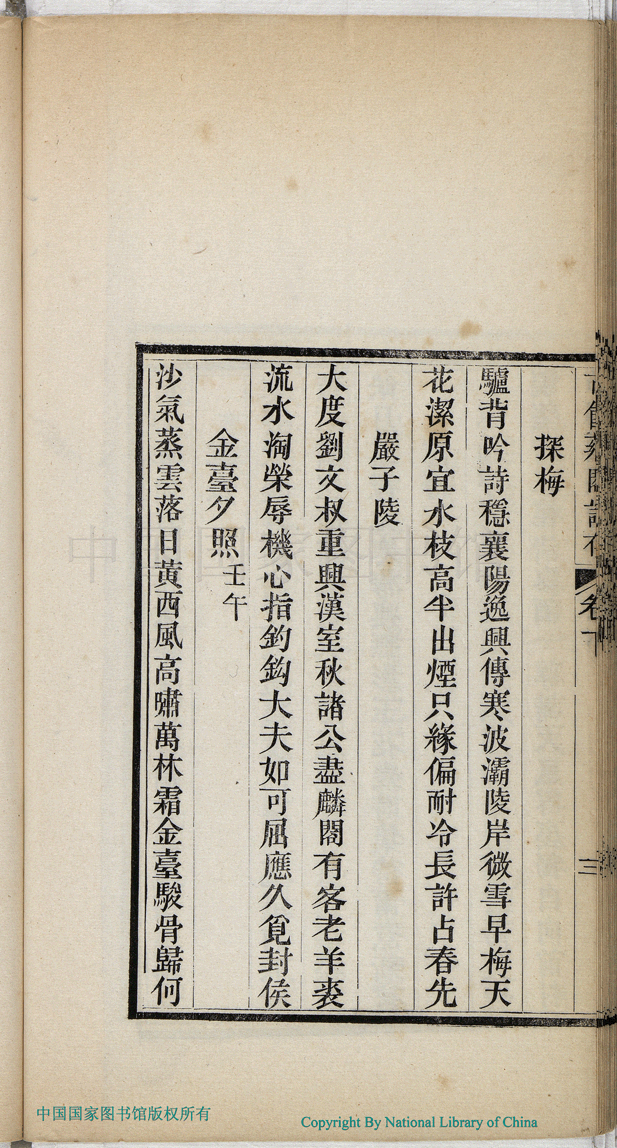 探梅
驢背吟詩穩襄陽逸興傳寒波灞陵岸微雪早梅天
花潔原宜水枝高半出煙只緣偏耐冷長許占春先
嚴子陵
大度劉文叔重興漢室秋諸公盡麟閣有客老羊裘
流水淘榮辱機心指釣鈎大夫如可屈應久覓封侯
金臺夕照壬午
沙氣蒸雲落日黄西風高嘯萬林霜金臺駿骨歸何
卷
三
中国国家图书馆
中国国家图书馆版权所有
Copyright By National Library of China